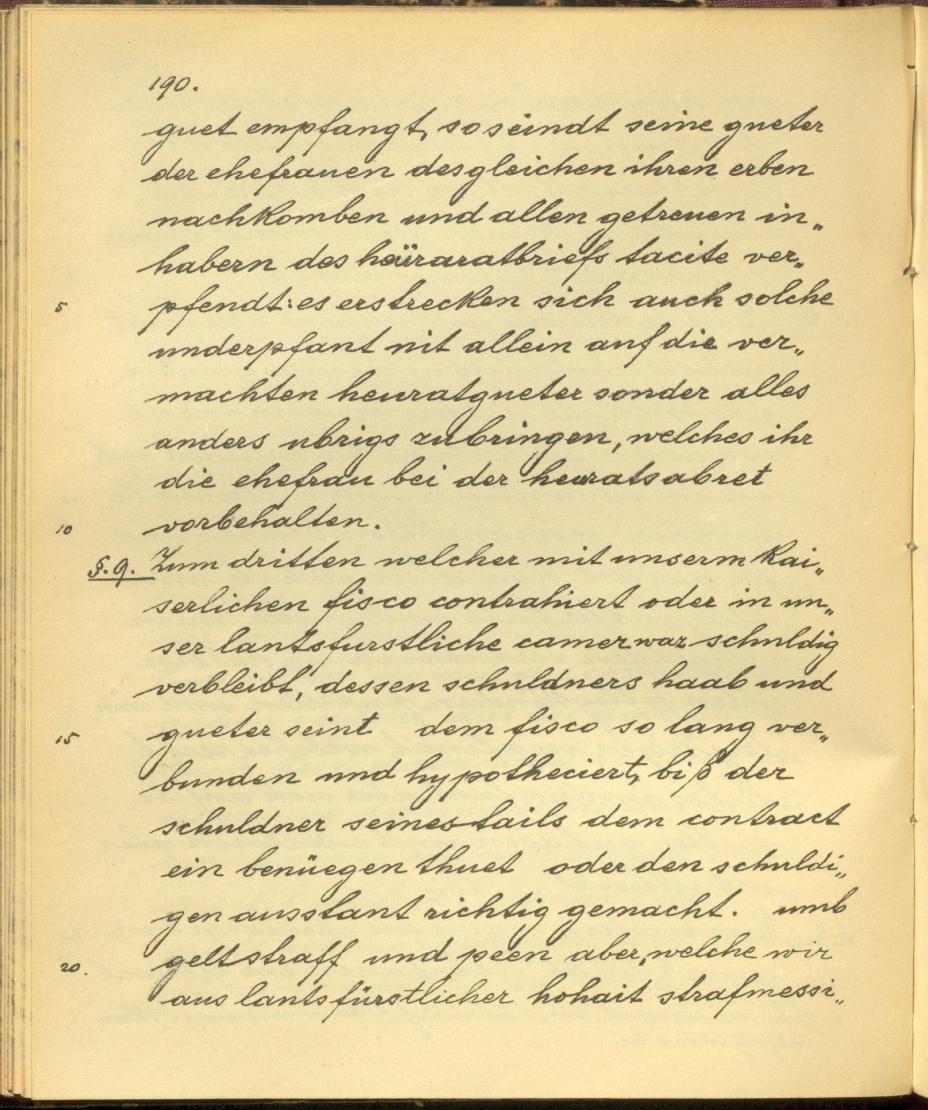 190.
guet empfangt, so seindt seine gueter
der ehefrauen desgleichen ihren erben
nachkomben und allen getreuen in„
habern des heüraratbriefs tacite ver„
5 pfendt: es erstrecken sich auch solche
underpfant nit allein auf die ver„
machten heuratgueter sonder alles
anders ubrigs zubringen, welches ihr
die ehefrau bei der heuratsabret
10 vorbehalten.
§. 9. Zum dritten welcher mit unserm Kai„
serlichen fisco contrahiert oder in un„
ser lantsfurstliche camer waz schuldig
verbleibt, dessen schuldners haab und
15 gueter seint dem fisco so lang ver„
bunden und hypotheciert, biß der
schuldner seines tails dem contract
ein benüegen thuet oder den schuldi„
gen ausstant richtig gemacht. umb
20. gelt straff und peen aber, welche wir
aus lantsfürstlicher hohait strafmessi„